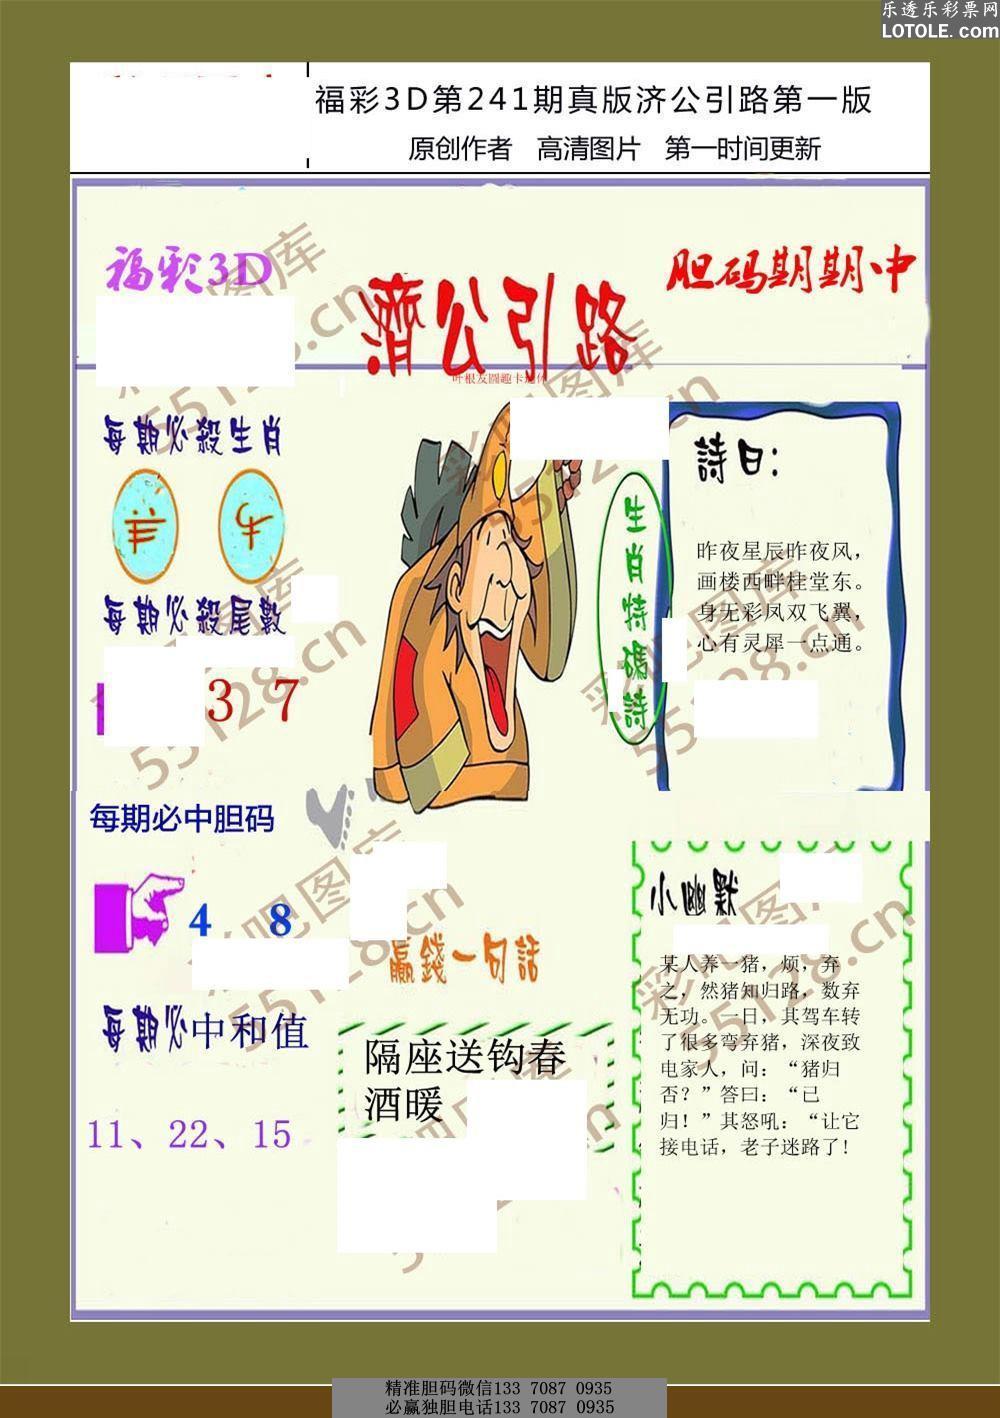 乐透乐彩票网
LOTOLE.com
福彩3D第241期真版济公引路第一版
原创作者 高清图片 第一时间更新
福彩3D
濟公引路
胆码期期中
叶根友圆趣卡通体
每期必殺生肖
羊 牛
每期必殺尾數
3 7
生肖特碼詩
詩曰:
昨夜星辰昨夜风，
画楼西畔桂堂东。
身无彩凤双飞翼，
心有灵犀一点通。
每期必中胆码
4 8
每期必中和值
11、22、15
贏錢一句話
隔座送钩春
酒暖
小幽默
某人养一猪，烦，弃
之，然猪知归路，数弃
无功。一日，其驾车转
了很多弯弃猪，深夜致
电家人，问：“猪归
否？”答曰：“已
归！”其怒吼：“让它
接电话，老子迷路了!
彩吧图库
55128.cn
彩吧图库
55128.cn
彩吧图库
55128.cn
彩吧图库
55128.cn
彩吧图库
55128.cn
彩吧图库
55128.cn
精准胆码微信133 7087 0935
必赢独胆电话133 7087 0935